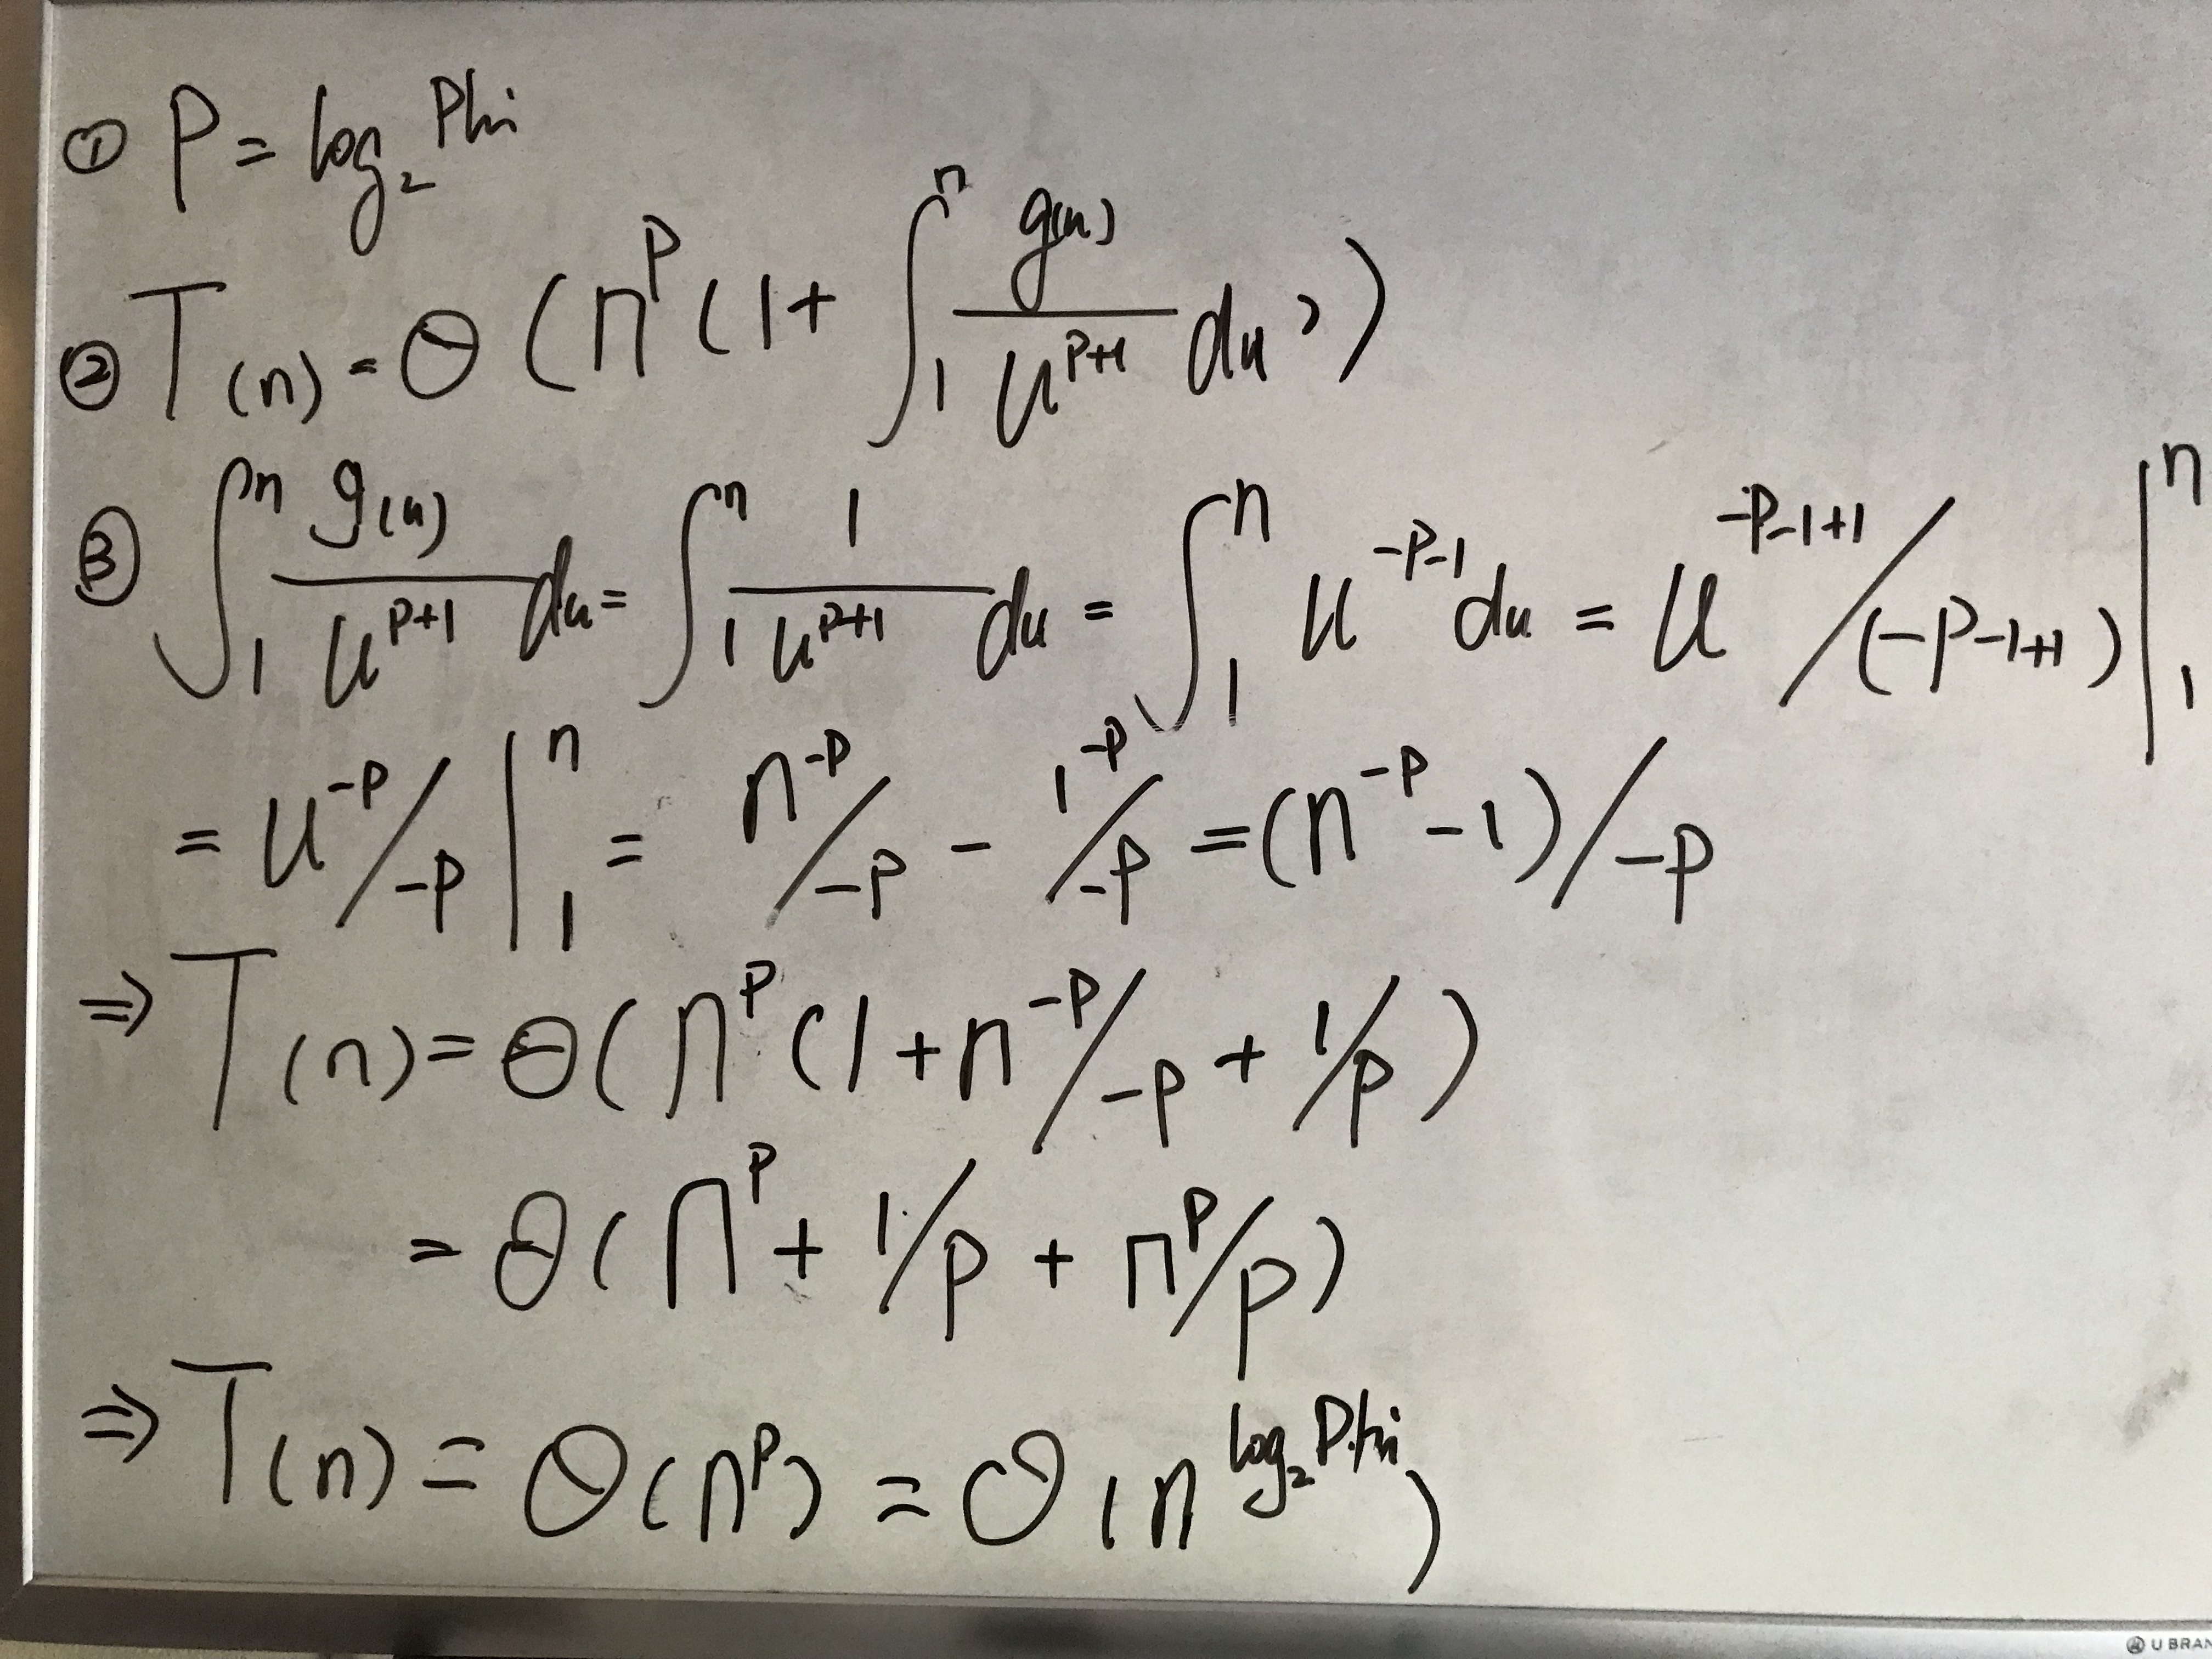 ① P = log₂ Phi
② T(n) = Θ(n^P(1+ ∫₁ⁿ g(u)/u^{P+1} du))
③ ∫₁ⁿ g(u)/u^{P+1} du = ∫₁ⁿ 1/u^{P+1} du = ∫₁ⁿ u^{-P-1} du = u^{-P-1+1}/(-P-1+1) |₁ⁿ
= u^{-P}/-P |₁ⁿ = n^{-P}/-P - 1^{-P}/-P = (n^{-P} - 1)/-P
⇒ T(n) = Θ(n^P(1+n^{-P}/-P + 1/P)
= Θ(n^P + 1/P + n^P/P)
⇒ T(n) = Θ(n^P) = Θ(n^{log₂ Phi})
U BRAN